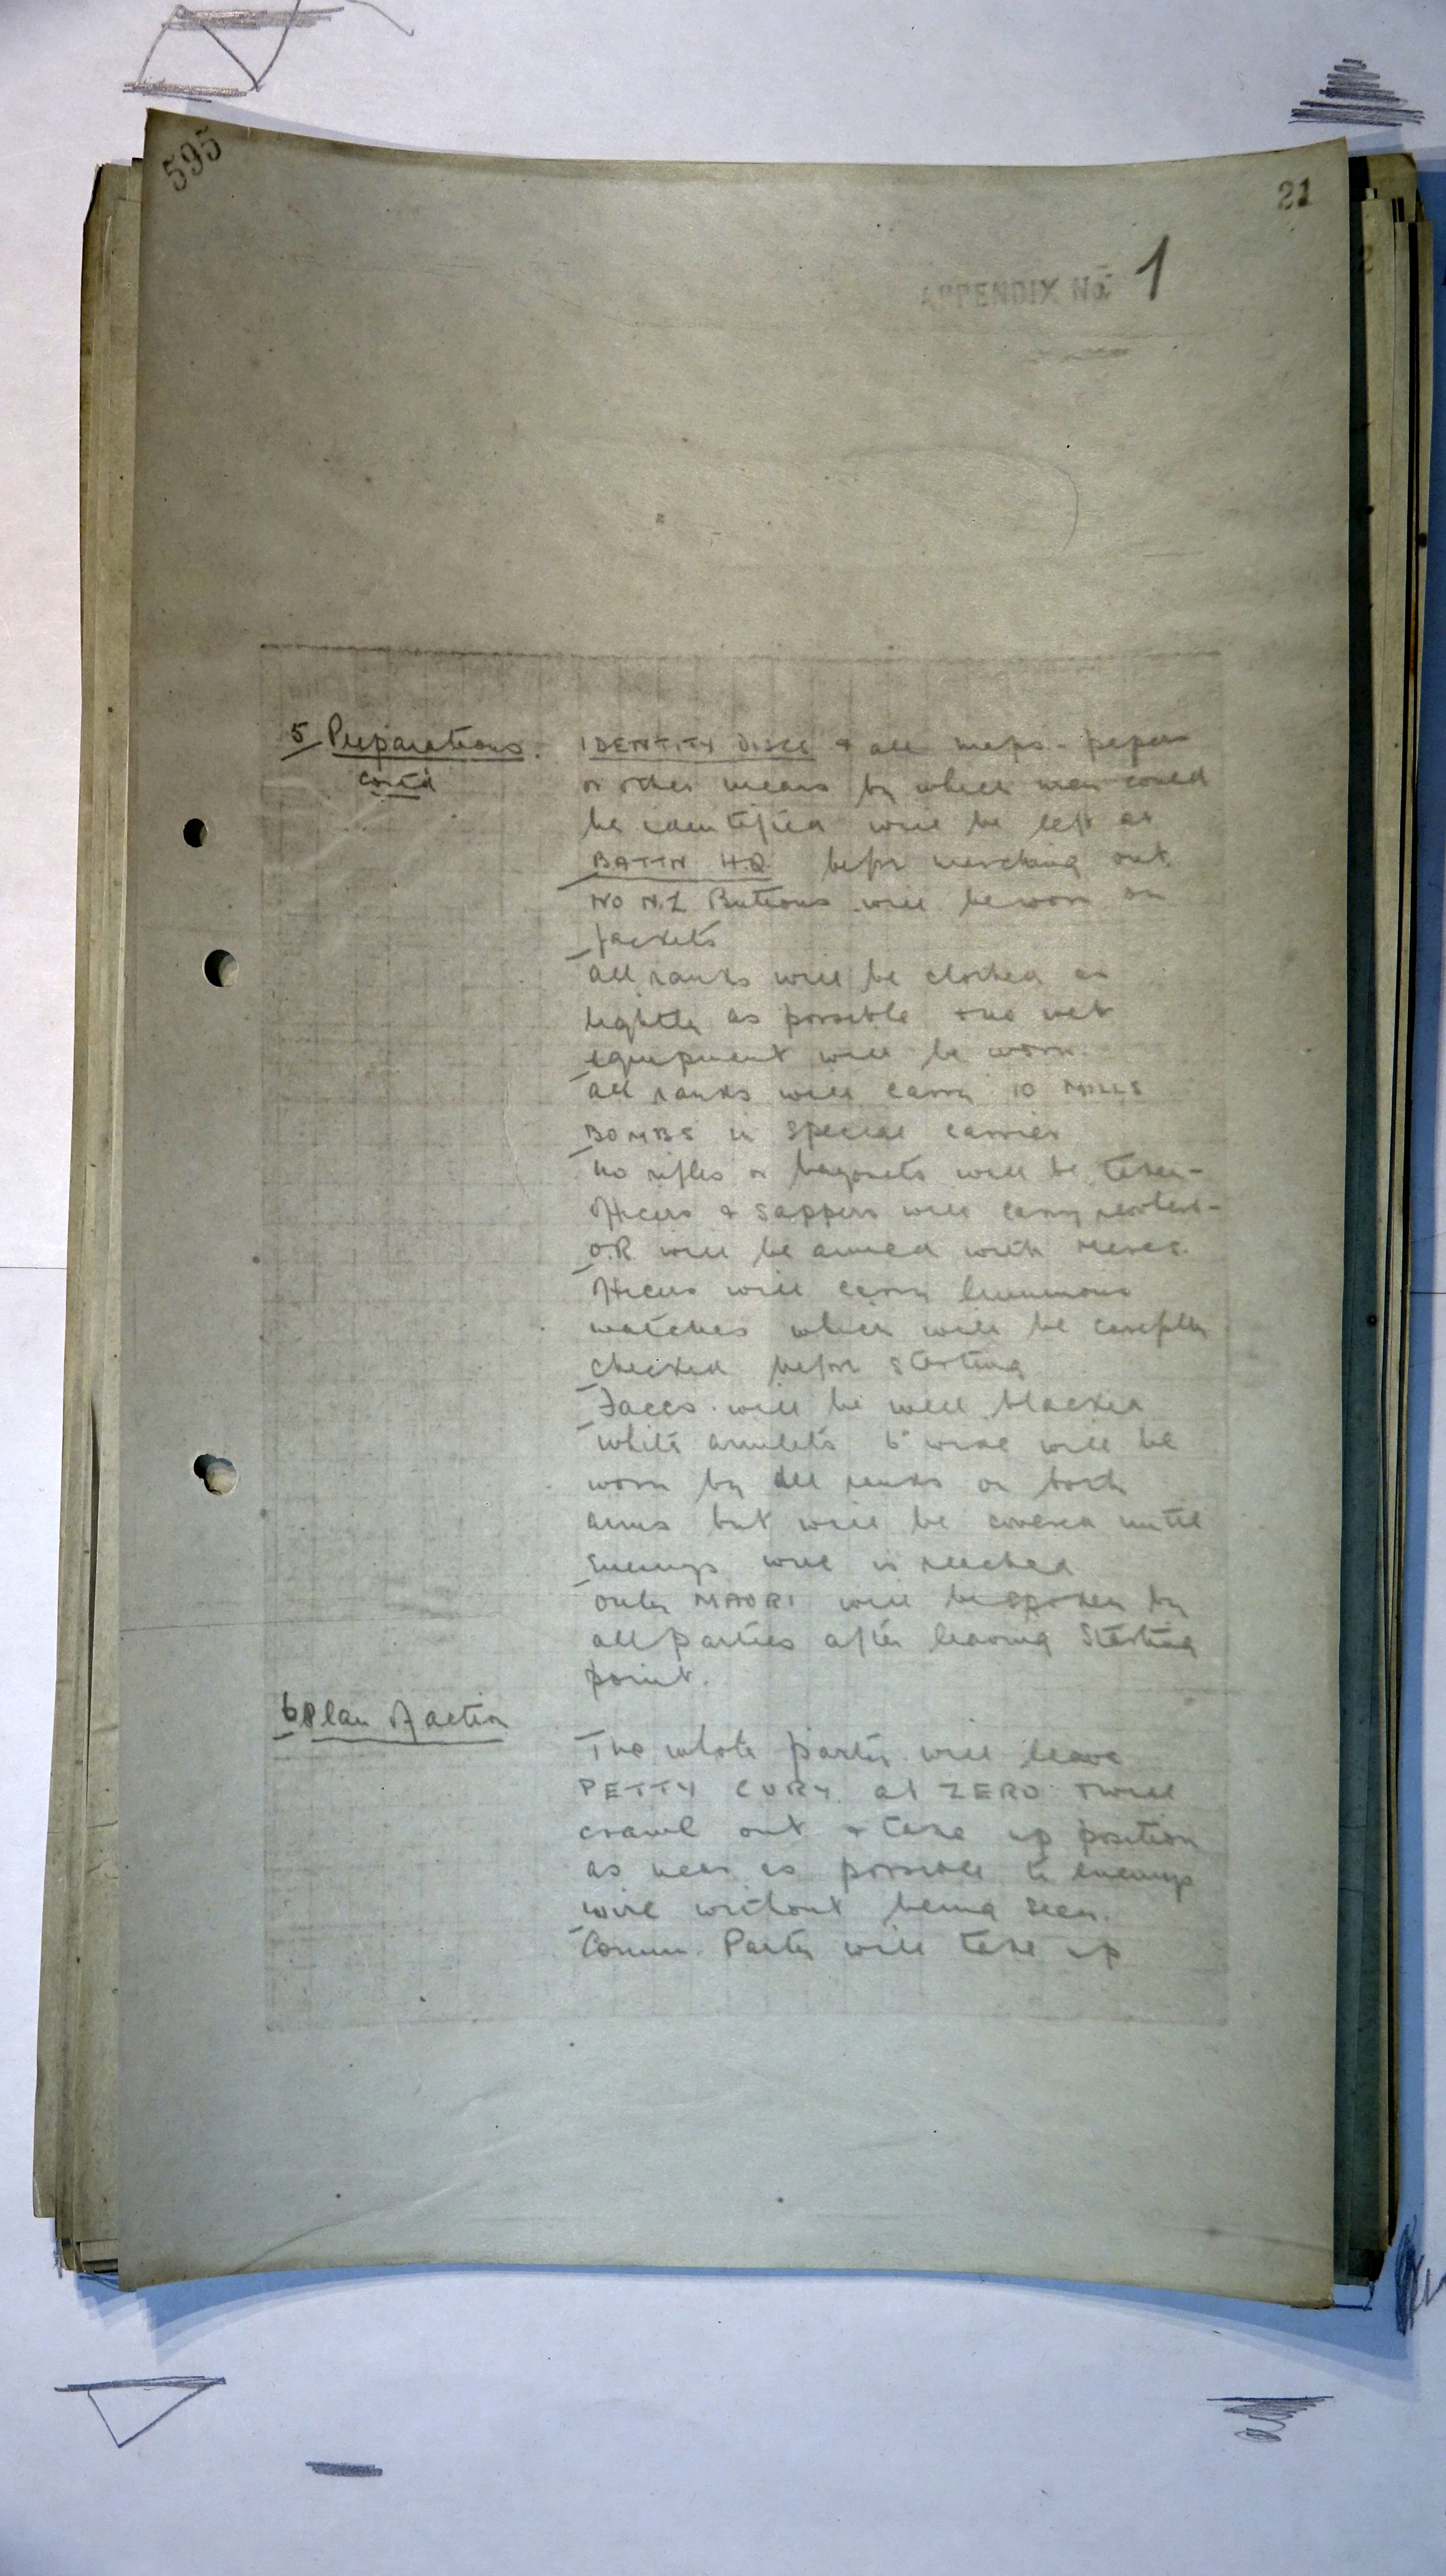 595
21
APPENDIX No. 1
5 Preparations. IDENTITY DISCS & all maps - papers
contd or other means by which men could
be identified will be left at
BATTN H.Q. before marching out.
No N.Z Buttons will be worn on
jackets
All ranks will be clothed as
lightly as possible & no web
equipment will be worn.
All ranks will carry 10 MILLS
BOMBS in special carrier
No rifles or bayonets will be taken -
Officers & Sappers will carry revolvers -
O.R. will be armed with
Officers will carry luminous
watches which will be carefully
checked before starting
Faces will be well blacked
White armlets 6" wide will be
worn by all ranks on both
arms but will be covered until
enemys wire is reached
Only MAORI will be spoken by
all parties after leaving Starting
point.
6 Plan of action
The whole party will leave
PETTY CURY at ZERO & will
crawl out & take up position
as near as possible to enemys
wire without being seen.
Comm. Party will take up